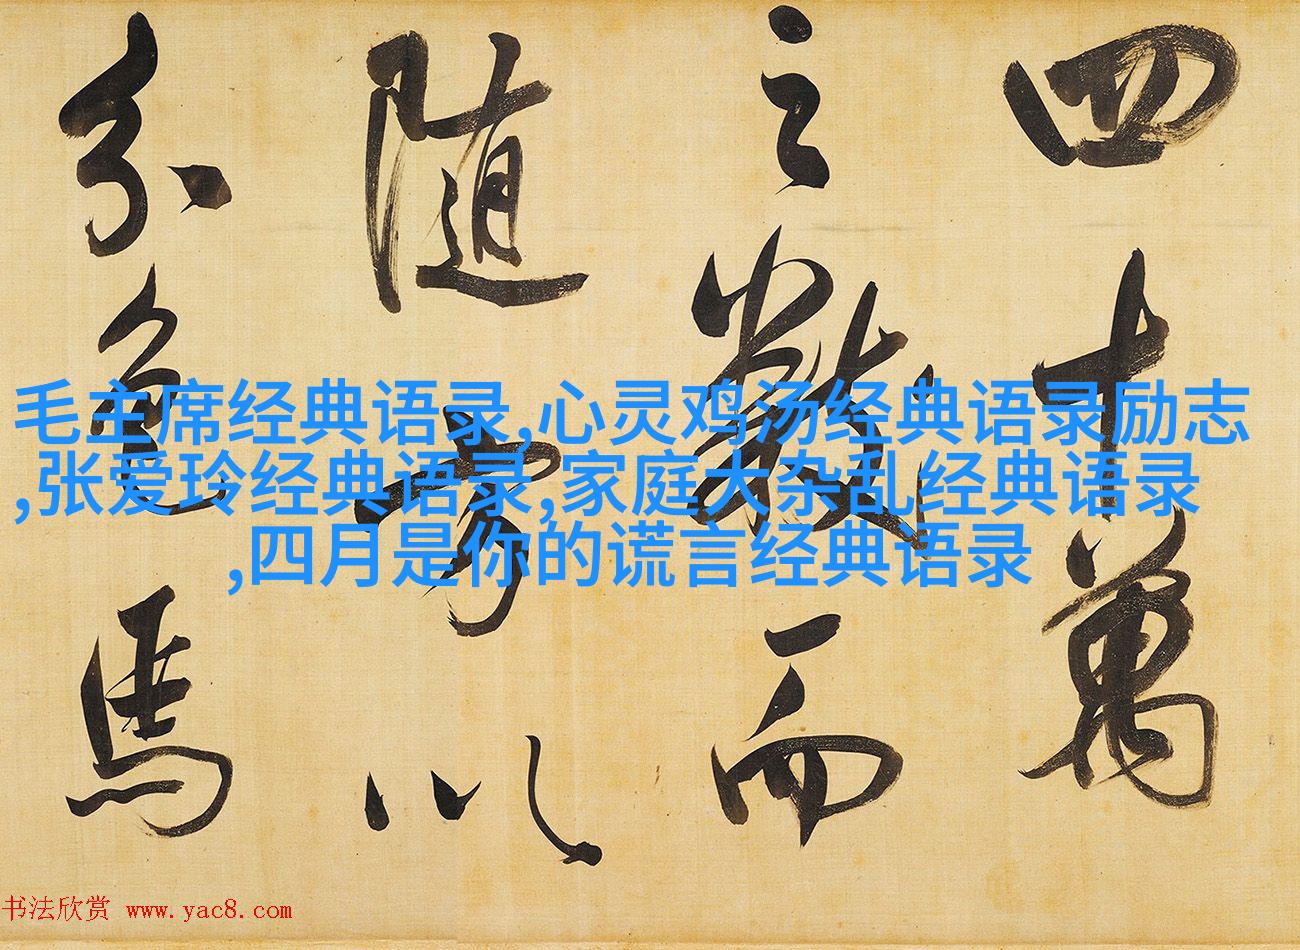 四十萬
之數而
隨方以
分色馬
毛主席经典语录,心灵鸡汤经典语录励志
,张爱玲经典语录,家庭大杂乱经典语录
,四月是你的谎言经典语录
书法欣赏 www.yac8.com